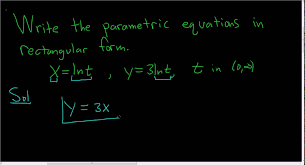 Write the parametric equations in
rectangular form.
X = lnt, y = 3lnt, t in (0,∞)
Sol
y = 3x